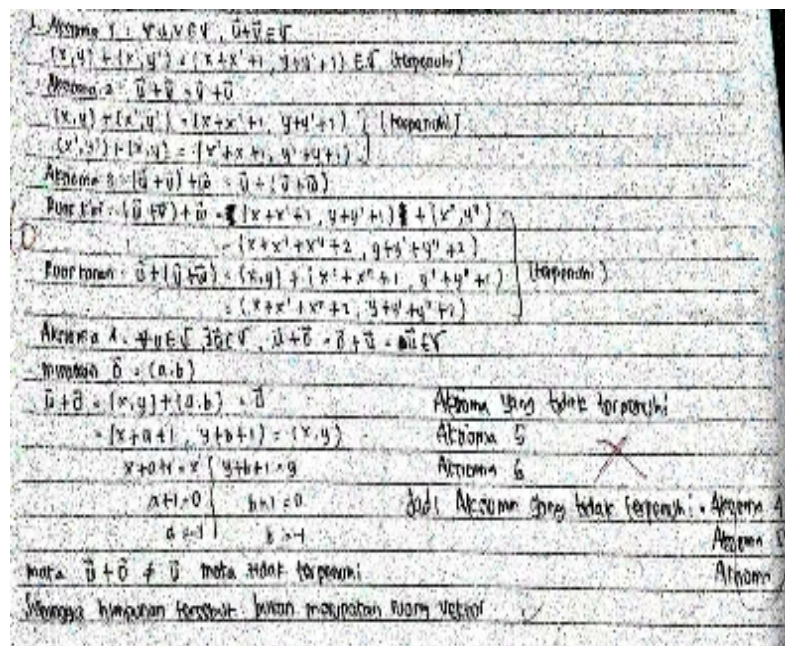 1. Aksioma 1 : ∀ u,v ∈ V, u⃗+v⃗ ∈ V
(x,y) + (x',y') = (x+x'+1, y+y'+1) ∈ V (terpenuhi)
Aksioma 2 : u⃗ + v⃗ = v⃗ + u⃗
(x,y) + (x',y') = (x+x'+1, y+y'+1) } (terpenuhi)
(x',y') + (x,y) = (x'+x+1, y'+y+1)
Aksioma 3 : (u⃗ + v⃗) + w⃗ = u⃗ + (v⃗+w⃗)
Ruas kiri : (u⃗ + v⃗) + w⃗ = (x+x'+1, y+y'+1) + (x'',y'')
= (x+x'+x''+2, y+y'+y''+2)
Ruas kanan : u⃗ + (v⃗+w⃗) = (x,y) + (x'+x''+1, y'+y''+1) (terpenuhi)
= (x+x'+x''+2, y+y'+y''+2)
Aksioma 4. ∀ u ∈ V, ∃ 0⃗ ∈ V, u⃗+0⃗ = 0⃗+u⃗ = u⃗ ∈ V
misalkan 0⃗ = (a.b)
u⃗+0⃗ = (x,y) + (a.b) = u⃗
= (x+a+1, y+b+1) = (x,y)
x+a+1 = x | y+b+1 = y
a+1=0 | b+1=0
a=-1 | b=-1
maka u⃗+0⃗ ≠ u⃗ maka tidak terpenuhi
Sehingga himpunan tersebut bukan merupakan ruang vektor
Aksioma yang tidak terpenuhi
Aksioma 5
Aksioma 6
Jadi Aksioma yang tidak terpenuhi = Aksioma 4
Aksioma
Aksioma